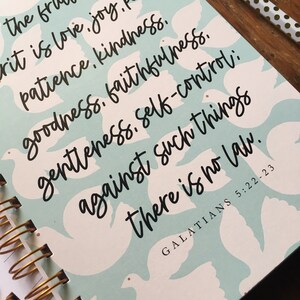 the fru
rit is love, joy, p
patience, kindness,
goodness, faithfulness,
gentleness, self-control;
against such things
there is no law.
GALATIANS 5:22-23